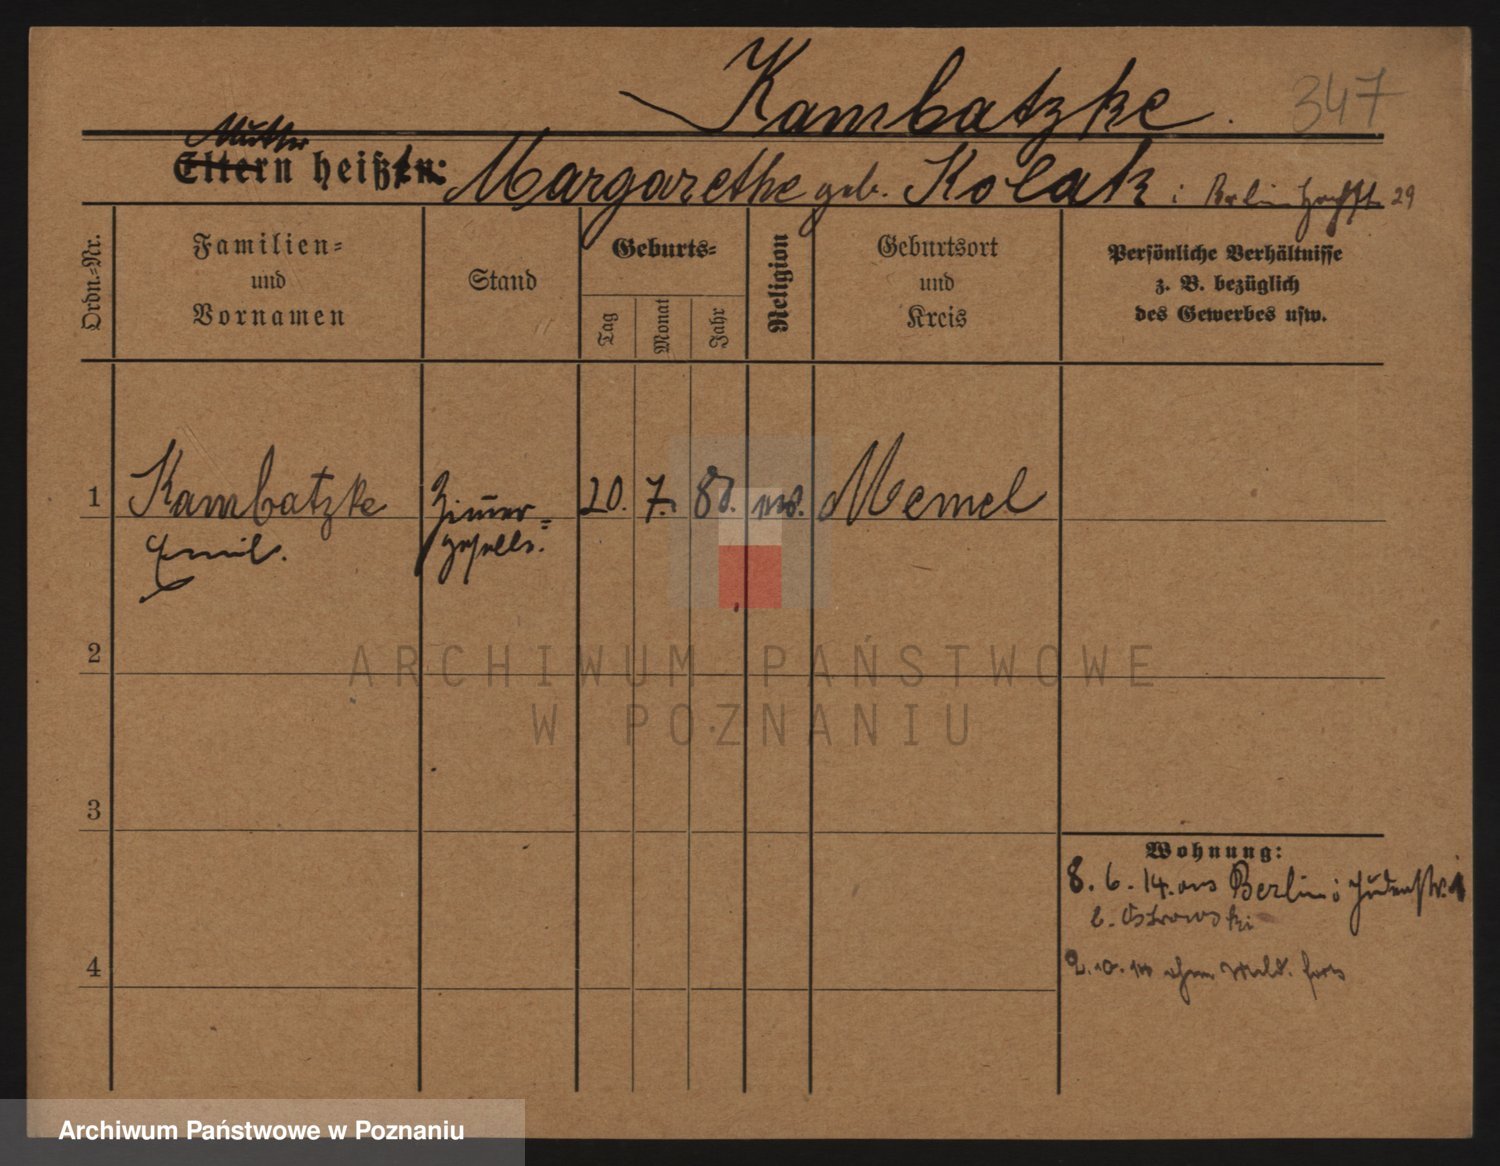 Kambatzke. 347
Mutter
Eltern heißen: Margarethe geb. Kolatz i. Berlin 29
Ordn.=Nr.
Familien=
und
Vornamen
Stand
Geburts=
Tag
Monat
Jahr
Religion
Geburtsort
und
Kreis
Persönliche Verhältnisse
z. B. bezüglich
des Gewerbes usw.
1 Kambatzke Zimer= 20. 7. Memel
Emil. geselle.
2
ARCHIWUM PAŃSTWOWE
W POZNANIU
3
Wohnung:
8. 6. 14. aus Berlin; Judenstr. 1
b. Ostrowski
4
Archiwum Państwowe w Poznaniu